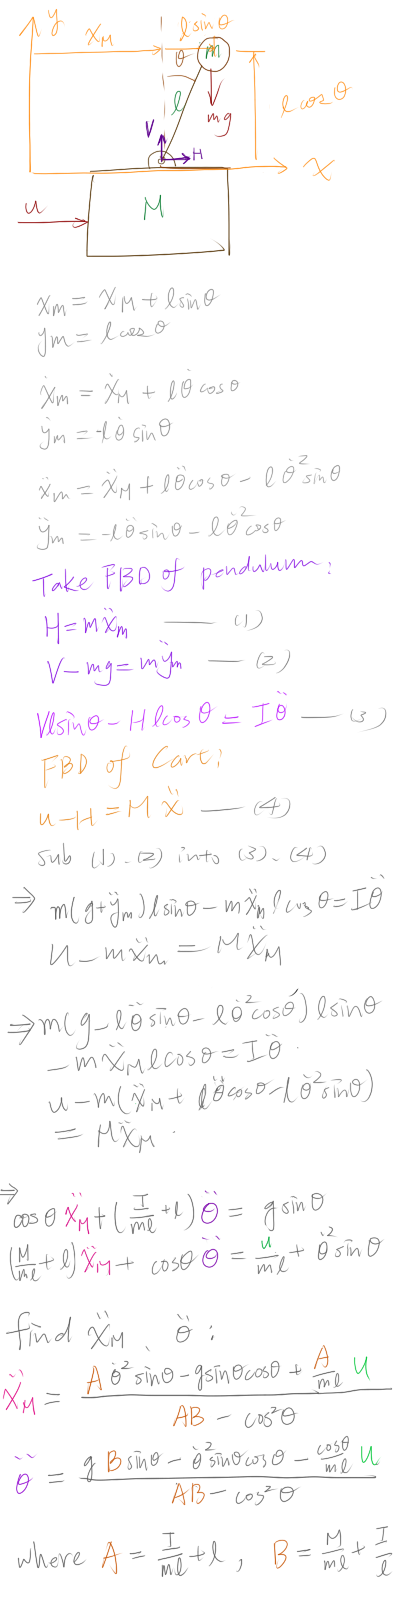 y
x_M
l sinθ
θ
m
l
mg
l cosθ
V
H
x
u
M
x_m = x_M + l sinθ
y_m = l cosθ
ẋ_m = ẋ_M + l θ̇ cosθ
ẏ_m = -l θ̇ sinθ
ẍ_m = ẍ_M + l θ̈ cosθ - l θ̇² sinθ
ÿ_m = -l θ̈ sinθ - l θ̇² cosθ
Take FBD of pendulum:
H = m ẍ_m —— (1)
V - mg = m ÿ_m —— (2)
V l sinθ - H l cosθ = I θ̈ —— (3)
FBD of Cart:
u - H = M ẍ —— (4)
sub (1), (2) into (3), (4)
⇒ m(g + ÿ_m) l sinθ - m ẍ_m l cosθ = I θ̈
u - m ẍ_m = M ẍ_M
⇒ m(g - l θ̈ sinθ - l θ̇² cosθ) l sinθ
- m ẍ_M l cosθ = I θ̈.
u - m(ẍ_M + l θ̈ cosθ - l θ̇² sinθ)
= M ẍ_M.
⇒
cosθ ẍ_M + (I/ml + l) θ̈ = g sinθ
(M/ml + l) ẍ_M + cosθ θ̈ = u/ml + θ̇² sinθ
find ẍ_M, θ̈ :
ẍ_M = (A θ̇² sinθ - g sinθ cosθ + A/ml u) / (AB - cos²θ)
θ̈ = (g B sinθ - θ̇² sinθ cosθ - cosθ/ml u) / (AB - cos²θ)
where A = I/ml + l , B = M/ml + I/l